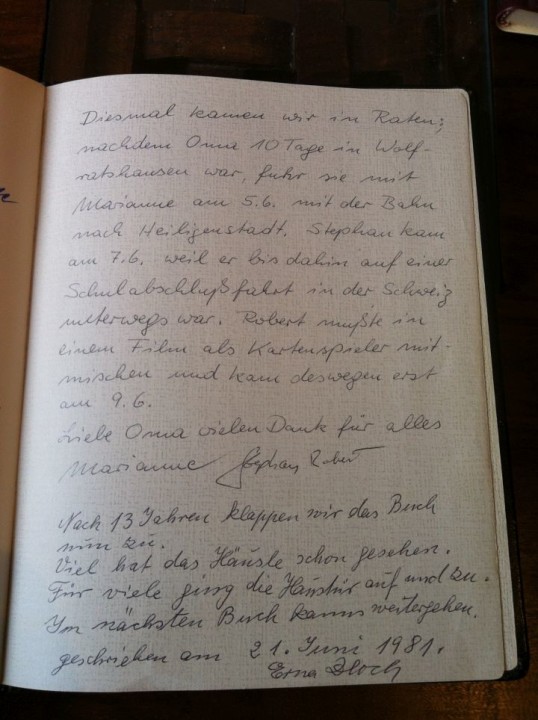 Diesmal kamen wir in Raten;
nachdem Oma 10 Tage in Wolf-
ratshausen war, fuhr sie mit
Marianne am 5.6. mit der Bahn
nach Heiligenstadt. Stephan kam
am 7.6. weil er bis dahin auf einer
Schulabschlußfahrt in der Schweiz
unterwegs war. Robert mußte in
einem Film als Kartenspieler mit-
mischen und kam deswegen erst
am 9.6.
Liebe Oma vielen Dank für alles
Marianne Stephan Robert
Nach 13 Jahren klappen wir das Buch
nun zu.
Viel hat das Häusle schon gesehen.
Für viele ging die Haustür auf und zu.
Im nächsten Buch kanns weitergehen.
geschrieben am 21. Juni 1981.
Erna